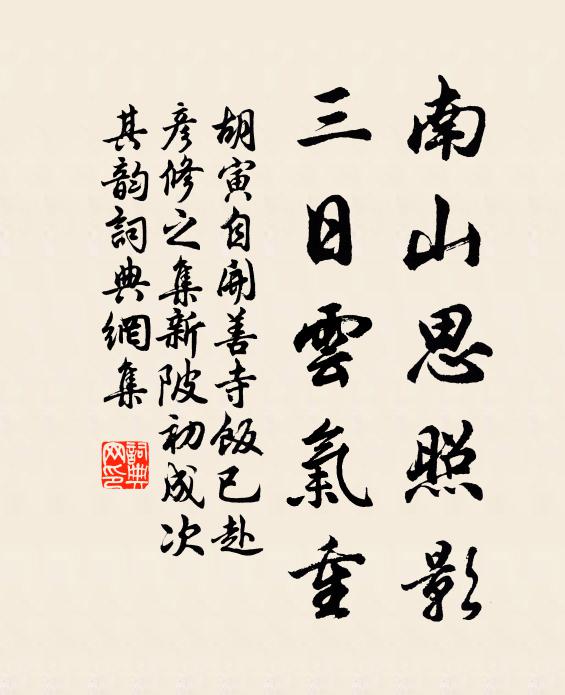 南山思照影
三日雲氣重
胡寅自開善寺飯已赴
彥修之集新陂初成次
其韵詞典網集
詞典網印